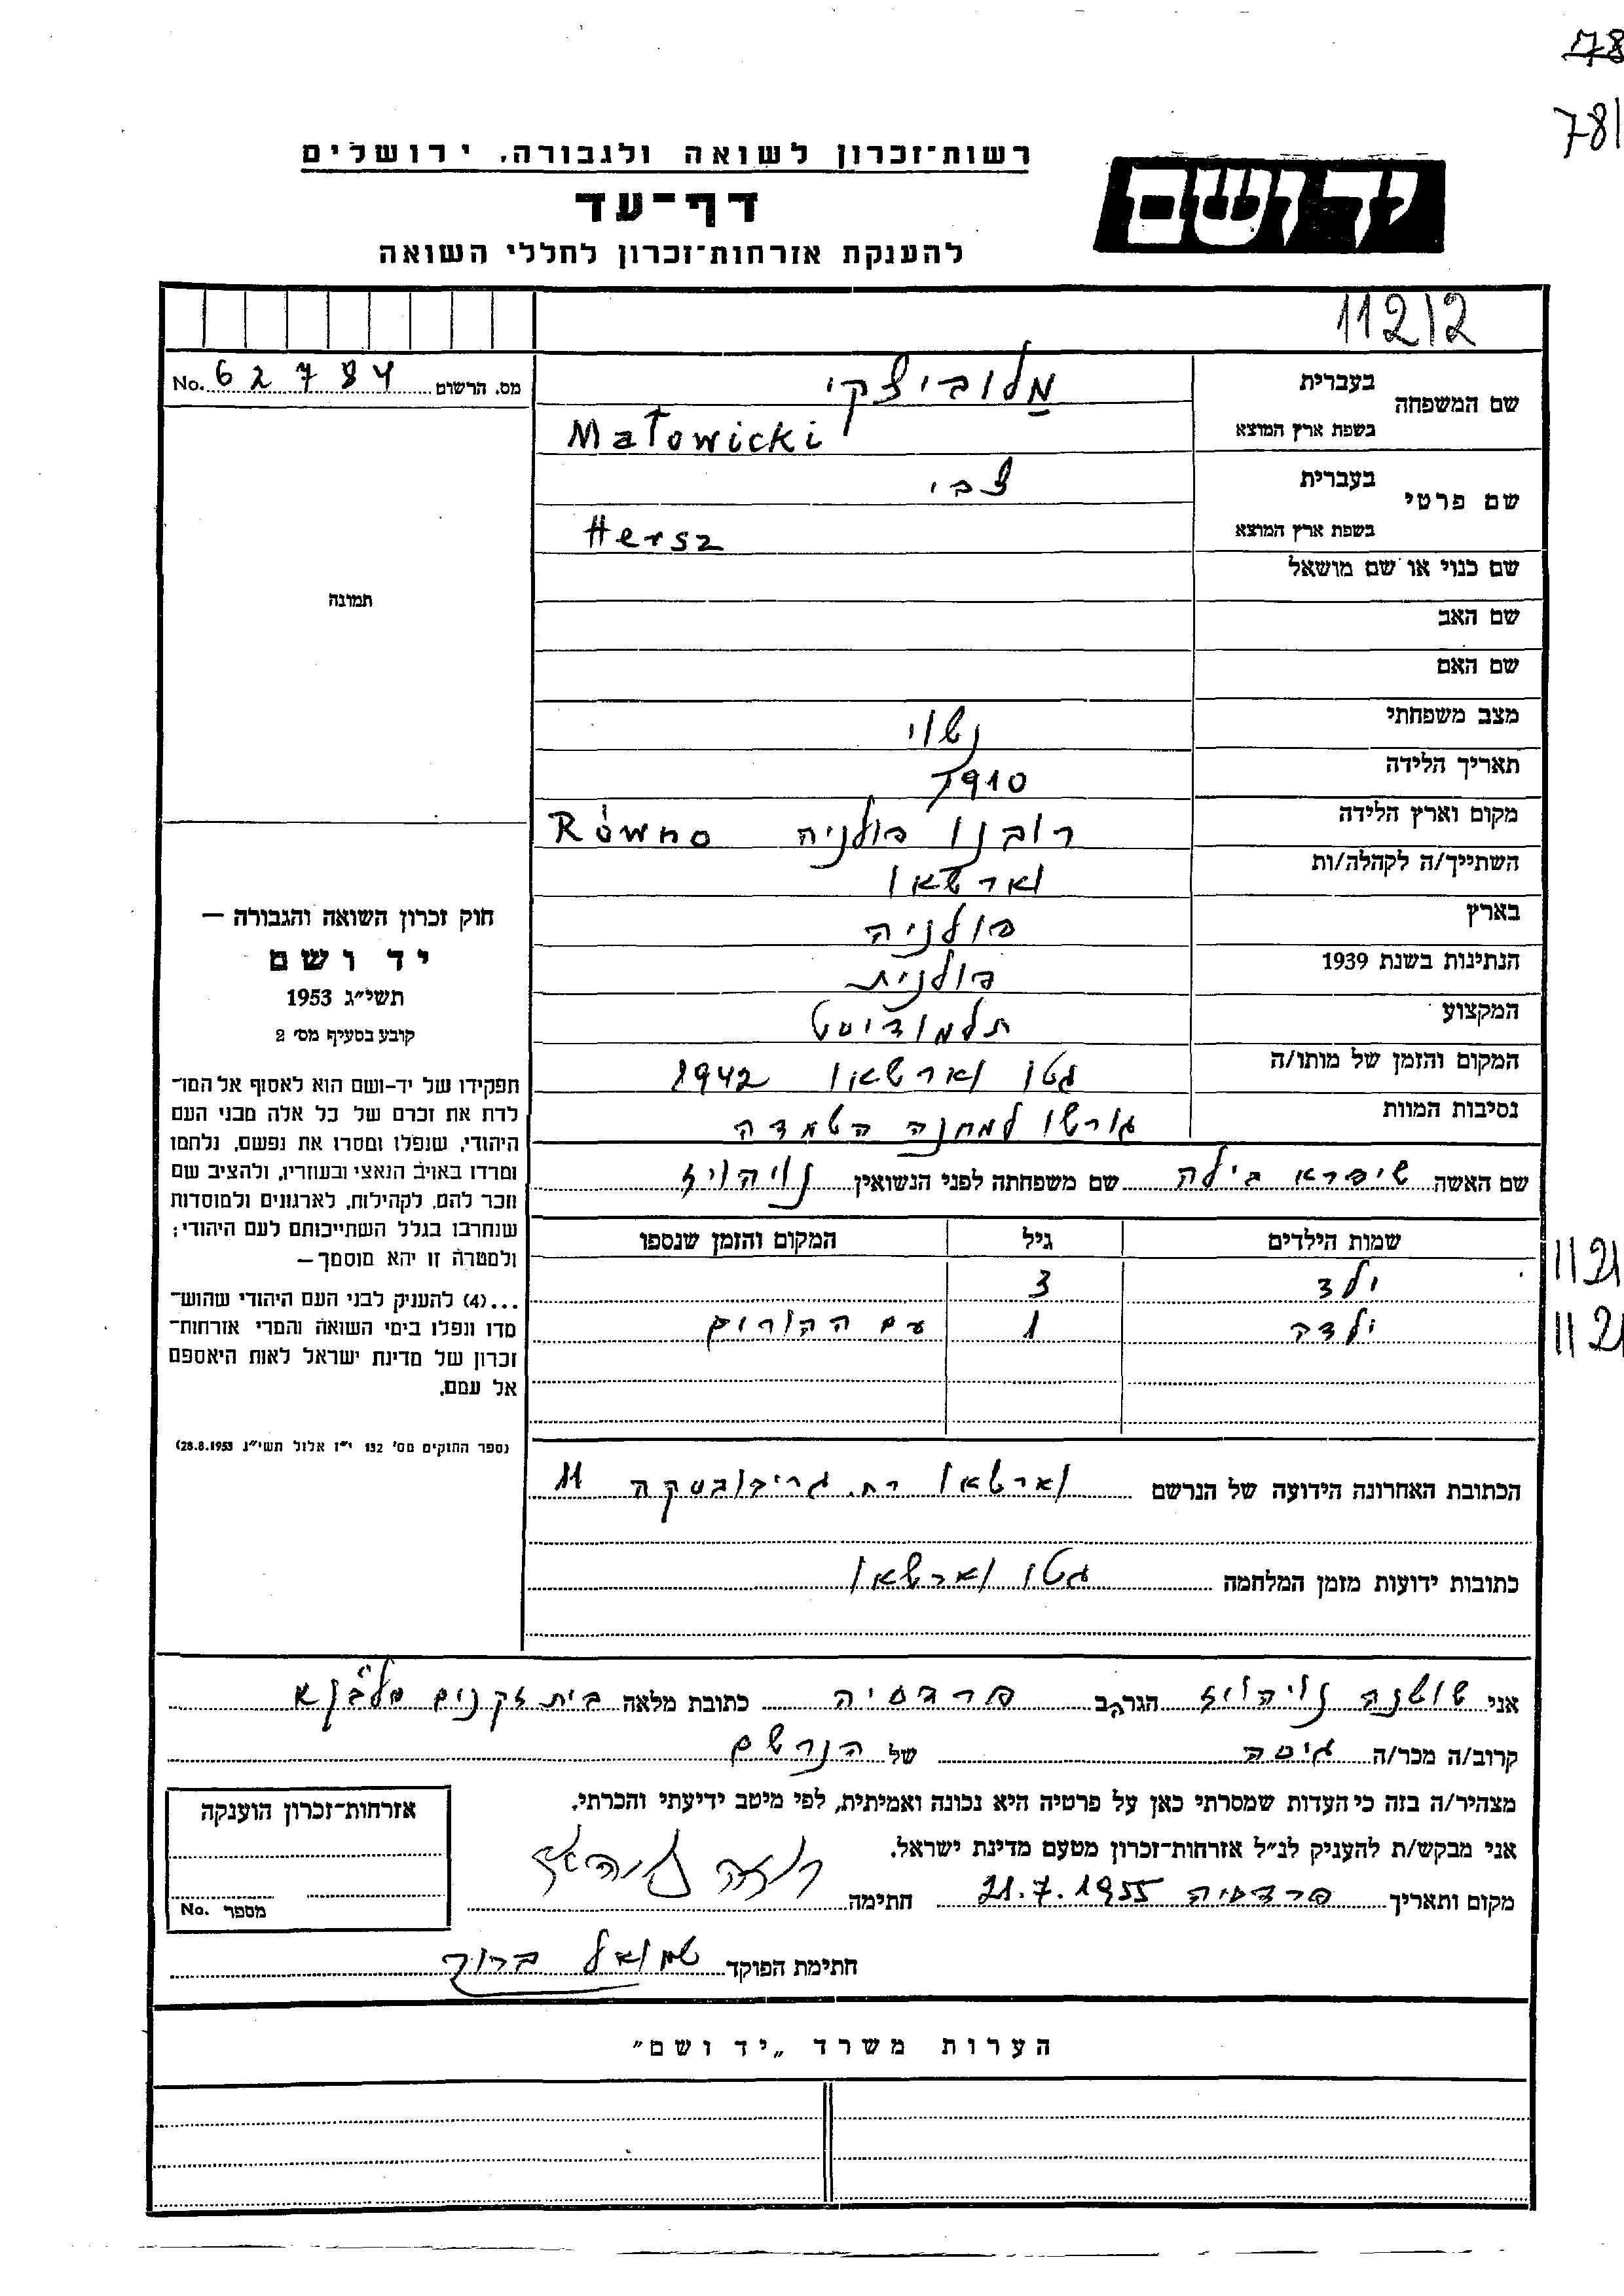 78
781
רשות־זכרון לשואה ולגבורה, ירושלים
יד ושם
דף־עד
להענקת אזרחות־זכרון לחללי השואה
11212
מס. הרשום 62784 No.
שם המשפחה בעברית מלוביצקי
בשפת ארץ המוצא Małowicki
שם פרטי בעברית צבי
בשפת ארץ המוצא Hersz
שם כנוי או שם מושאל
שם האב
שם האם
מצב משפחתי נשוי
תאריך הלידה 1910
מקום וארץ הלידה רובנו פולניה Równo
השתייך/ה לקהלה/ות וארשאו
בארץ פולניה
הנתינות בשנת 1939 פולנית
המקצוע תלמודיסט
המקום והזמן של מותו/ה גטו וארשאו 1942
נסיבות המוות גורשו למחנה השמדה
שם האשה שיפרא בילה שם משפחתה לפני הנשואין נויהויז
שמות הילדים גיל המקום והזמן שנספו
ילד 3
1121
ילדה 1 עם ההורים
1121
הכתובת האחרונה הידועה של הנרשם וארשאו רח. גריבובסקה 11
כתובות ידועות מזמן המלחמה גטו וארשאו
תמונה
חוק זכרון השואה והגבורה —
יד ושם
תשי״ג 1953
קובע בסעיף מס׳ 2
תפקידו של יד-ושם הוא לאסוף אל המו־
לדת את זכרם של כל אלה מבני העם
היהודי, שנפלו ומסרו את נפשם, נלחמו
ומרדו באויב הנאצי ובעוזריו, ולהציב שם
וזכר להם, לקהילות, לארגונים ולמוסדות
שנחרבו בגלל השתייכותם לעם היהודי;
ולמטרה זו יהא מוסמך—
...(4) להענק לבני העם היהודי שהוש־
מדו ונפלו בימי השואה והמרי אזרחות־
זכרון של מדינת ישראל לאות היאספם
אל עמם.
(ספר החוקים מס׳ 132 י״ז אלול תשי״ג 28.8.1953)
אני שושנה נויהויז הגר/ה ב פרדסיה כתובת מלאה בית זקנים מלב״ן א
קרוב/ה מכר/ה גיסה של הנרשם
מצהיר/ה בזה כי העדות שמסרתי כאן על פרטיה היא נכונה ואמיתית, לפי מיטב ידיעתי והכרתי.
אני מבקש/ת להעניק לנ״ל אזרחות־זכרון מטעם מדינת ישראל.
מקום ותאריך פרדסיה 21.7.1955 חתימה
אזרחות־זכרון הוענקה
מספר No.
חתימת הפוקד שמואל ברוך
הערות משרד „יד ושם״